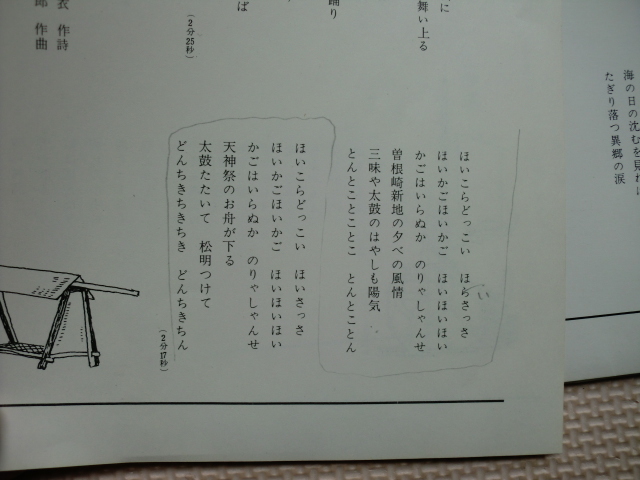 海の日の沈むを見れば
たぎり落つ異郷の涙
に
舞い上る
踊り
ば
(2分25秒)
衣 作詩
郎 作曲
ほいこらどっこい ほらさっさ
い
ほいかごほいかご ほいほいほい
かごはいらぬか のりゃしゃんせ
曽根崎新地の夕べの風情
三味や太鼓のはやしも陽気
とんとことことこ とんとことん
ほいこらどっこい ほいさっさ
ほいかごほいかご ほいほいほい
かごはいらぬか のりゃしゃんせ
天神祭のお舟が下る
太鼓たたいて 松明つけて
どんちきちきちき どんちきちん
(2分17秒)